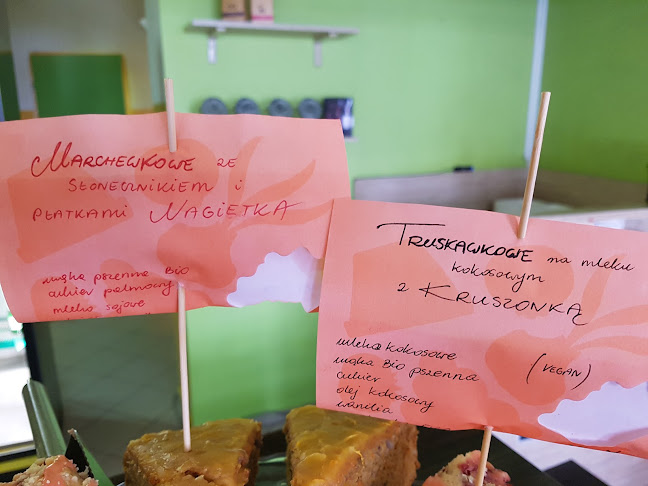 MARCHEWKOWE ze
SŁONECZNIKIEM i
PŁATKAMI NAGIETKA
mąka pszenna BIO
cukier palmowy
mleko sojowe
TRUSKAWKOWE na mleku
kokosowym
z KRUSZONKĄ
mleko kokosowe
mąka BIO pszenna
cukier
olej kokosowy
wanilia
(VEGAN)